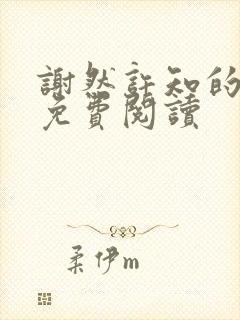 謝然許知的
免費閱讀
柔伊m